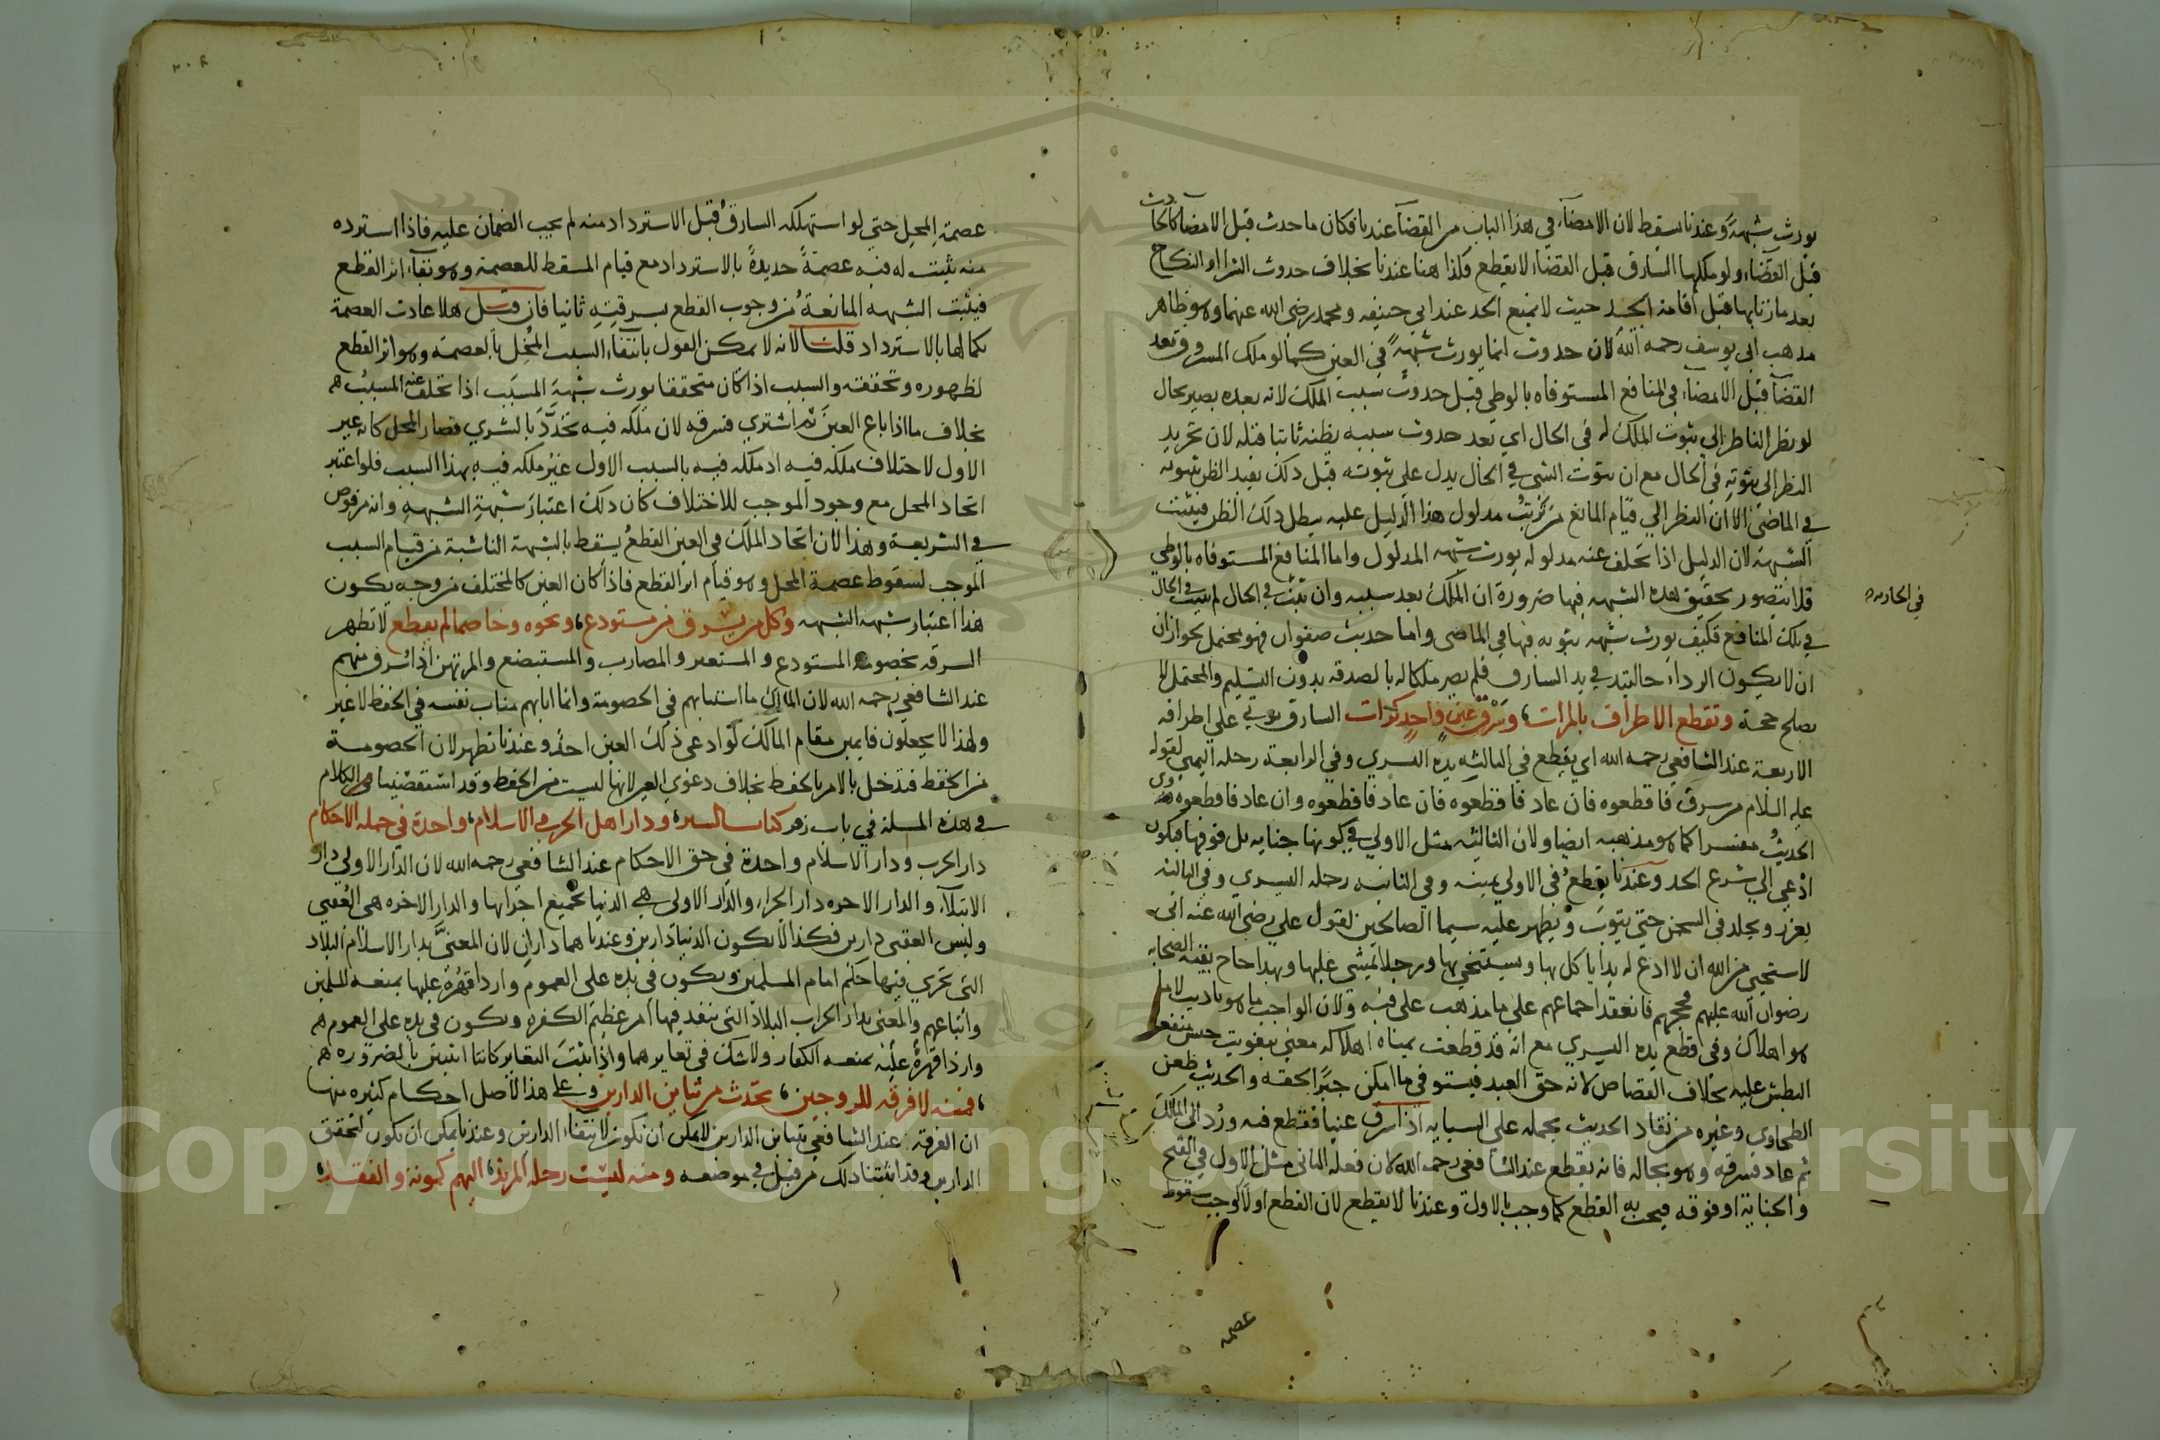 يورث شبهة وعندنا يسقط لان الامضاء في هذا الباب من القضآ عندنا فكان ما حدث قبل الامضا كالحادث
قبل القضاء ولو ملكها السارق قبل القضاء لا يقطع فكذا هنا عندنا بخلاف حدوث الشرا او النكاح
بعد ما زنا بها قبل اقامة الحد حيث لا يمنع الحد عند ابي حنيفه ومحمد رضي الله عنهما وهو ظاهر
مذهب ابي يوسف رحمه الله لان حدوث انما يورث شبهة في العين كما لو ملك المسروق بعد
القضآ قبل الامضآء في المنافع المستوفاه بالوطي قبل حدوث سبب الملك لانه بعده يصير بحال
لو نظر الناظر الي ثبوت الملك له في الحال اي بعد حدوث سببه يظنه ثابتا قبله لان تجريد
النظر الى ثبوته في الحال مع ان ثبوت الشي في الحال يدل على ثبوته قبل ذلك يفيد الظن بثبوته
في الماضي الا ان النظر الي قيام المانع من ترتب مدلول هذا الدليل عليه يبطل ذلك الظن فيثبت
الشبهة لان الدليل اذا تخلف عنه مدلوله يورث شبهه المدلول واما المنافع المستوفاه بالوطي
فلا يتصور تحقيق هذه الشبهه فيها ضرورة ان الملك بعد سببه وان ثبت في الحال لم يثبت في الحال
في تلك المنافع فكيف يورث شبهه ثبوته فيها في الماضي واما حديث صفوان فهو محتمل لجواز ان
ان لا يكون الرداء حالتئذ في يد السارق فلم يصر ملكا له بالصدقه بدون التسليم والمحتمل لا
يصلح حجة وتقطع الاطراف بالمرات، وسرق عين واحد كرات السارق يوتي علي اطرافه
الاربعة عند الشافعي رحمه الله اي يقطع في الثالثه يده اليسري وفي الرابعة رجله اليمني لقوله
عليه السلام من سرق فاقطعوه فان عاد فاقطعوه فان عاد فاقطعوه وان عاد فاقطعوه
الحديث مفسرا كما هو مذهبه ايضا ولان الثالثه مثل الاولي في كونها جنايه بل فوقها فيكون
ادعي الي شرع الحد وعندنا يقطع في الاولي يمينه وفي الثانيه رجله اليسري وفي الثالثه
يعزر ويخلد في السجن حتي يتوب ويظهر عليه سيما الصالحين لقول علي رضي الله عنه اني
لا ستحيي من الله ان لا ادع له يدا ياكل بها ويستنجي بها ورجلا يمشي عليها وبهذا حاج بقيه الصحابه
رضوان الله عليهم فحجهم فانعقد اجماعهم على ما مذهب علي فيه ولان الواجب ما هو تاديب لا ما
هو اهلاك وفي قطع يده اليسري مع انه قد قطعت يمناه اهلاكه معني بتفويت جنس منفعه
البطش عليه بخلاف القصاص لانه حق العبد فيستوفي ما امكن جبرا لحقه والحديث طعن
الطحاوي وغيره من نقاد الحديث بحمله على السياسه اذا سرق عينا فقطع فيه ورد الى المالك
ثم عاد فسرقه وهو بحاله فانه يقطع عند الشافعي رحمه الله لان فعله الثاني مثل الاول في القبح
والجناية او فوقه فيجب به القطع كما وجب بالاول وعندنا لا يقطع لان القطع اولا اوجب سقوط
عصمه
عصمة المحل حتي لو استهلكه السارق قبل الاسترداد منه لم يجب الضمان عليه فاذا استرده
منه يثبت له فيه عصمة جديدة بالاسترداد مع قيام المسقط للعصمة وهو بقآء اثر القطع
فيثبت الشبهه المانعة من وجوب القطع بسرقته ثانيا فان قيل هلا عادت العصمة
بكمالها بالاسترداد قلنا لانه لا يمكن القول بانتفاء السبب المخل بالعصمة وهو اثر القطع
لظهوره وتحققه والسبب اذا كان متحققا يورث شبهة المسبب اذا تخلف عنه المسبب
بخلاف ما اذا باع العين ثم اشتري فسرقه لان ملكه فيه تجدد بالشري فصار المحل كانه غير
الاول لاختلاف ملكه فيه اذ ملكه فيه بالسبب الاول غير ملكه فيه بهذا السبب فلو اعتبر
اتحاد المحل مع وجود الموجب للاختلاف كان ذلك اعتبار شبهة الشبهة وانه مرفوض
في الشريعة وهذا لان اتحاد الملك في العين القطع يسقط بالشبهة الناشئة من قيام السبب
الموجب لسقوط عصمة المحل وهو قيام اثر القطع فاذا كان العين كالمختلف من وجه يكون
هذا اعتبار شبهه الشبهه وكل من يسرق من مستودع، ونحوه وخاصما لم يقطع لا تظهر
السرقه بخصومه المستودع والمستعير والمضارب والمستبضع والمرتهن اذا سرق منهم
عند الشافعي رحمه الله لان المالك ما استنابهم في الخصومة وانما انابهم مناب نفسه في الحفظ لا غير
ولهذا لا يجعلون قايمين مقام المالك لو ادعى ذلك العين احد وعندنا تظهر لان الخصومة
من الحفظ فتدخل بالامر بالحفظ بخلاف دعوي العين لانها ليست من الحفظ وقد استقصينا في الكلام
في هذه المسلة في باب زفر كتاب السير، ودار اهل الحرب والاسلام، واحدة في جمله الاحكام
دار الحرب ودار الاسلام واحدة في حق الاحكام عند الشافعي رحمه الله لان الدار الاولي دار
الابتلآء والدار الاخره دار الجزاء والدار الاولى هي الدنيا بجميع اجزائها والدار الاخره هي العقبي
وليس العقبى دارين فكذا لا يكون الدنيا دارين وعندنا هما داران لان المعني بدار الاسلام البلاد
التي تجري فيها حكم امام المسلمين ويكون في يده على العموم واراد قهره عليها بمنعه المسلمين
واتباعهم والمعني بدار الحرب البلاد التي ينفد فيها امر عظيم الكفره ويكون في يده على العموم
واراد قهره عليه بمنعه الكفار ولا شك في تغايرهما واذا ثبت التغاير كانتا اثنين بالضروره
، فمنه لا فرقه للزوجين، تحدث من تباين الدارين وعلى هذا الاصل احكام كثيره منها
ان الفرقة عند الشافعي بتباين الدارين لا يمكن ان تكون لانتفاء الدارين وعندنا يمكن ان تكون لتحقق
الدارين وقد اثبتنا ذلك من قبل في موضعه ومنه ليست رحله المرتد، اليهم كموته والفقد
Copyright © King Saud University